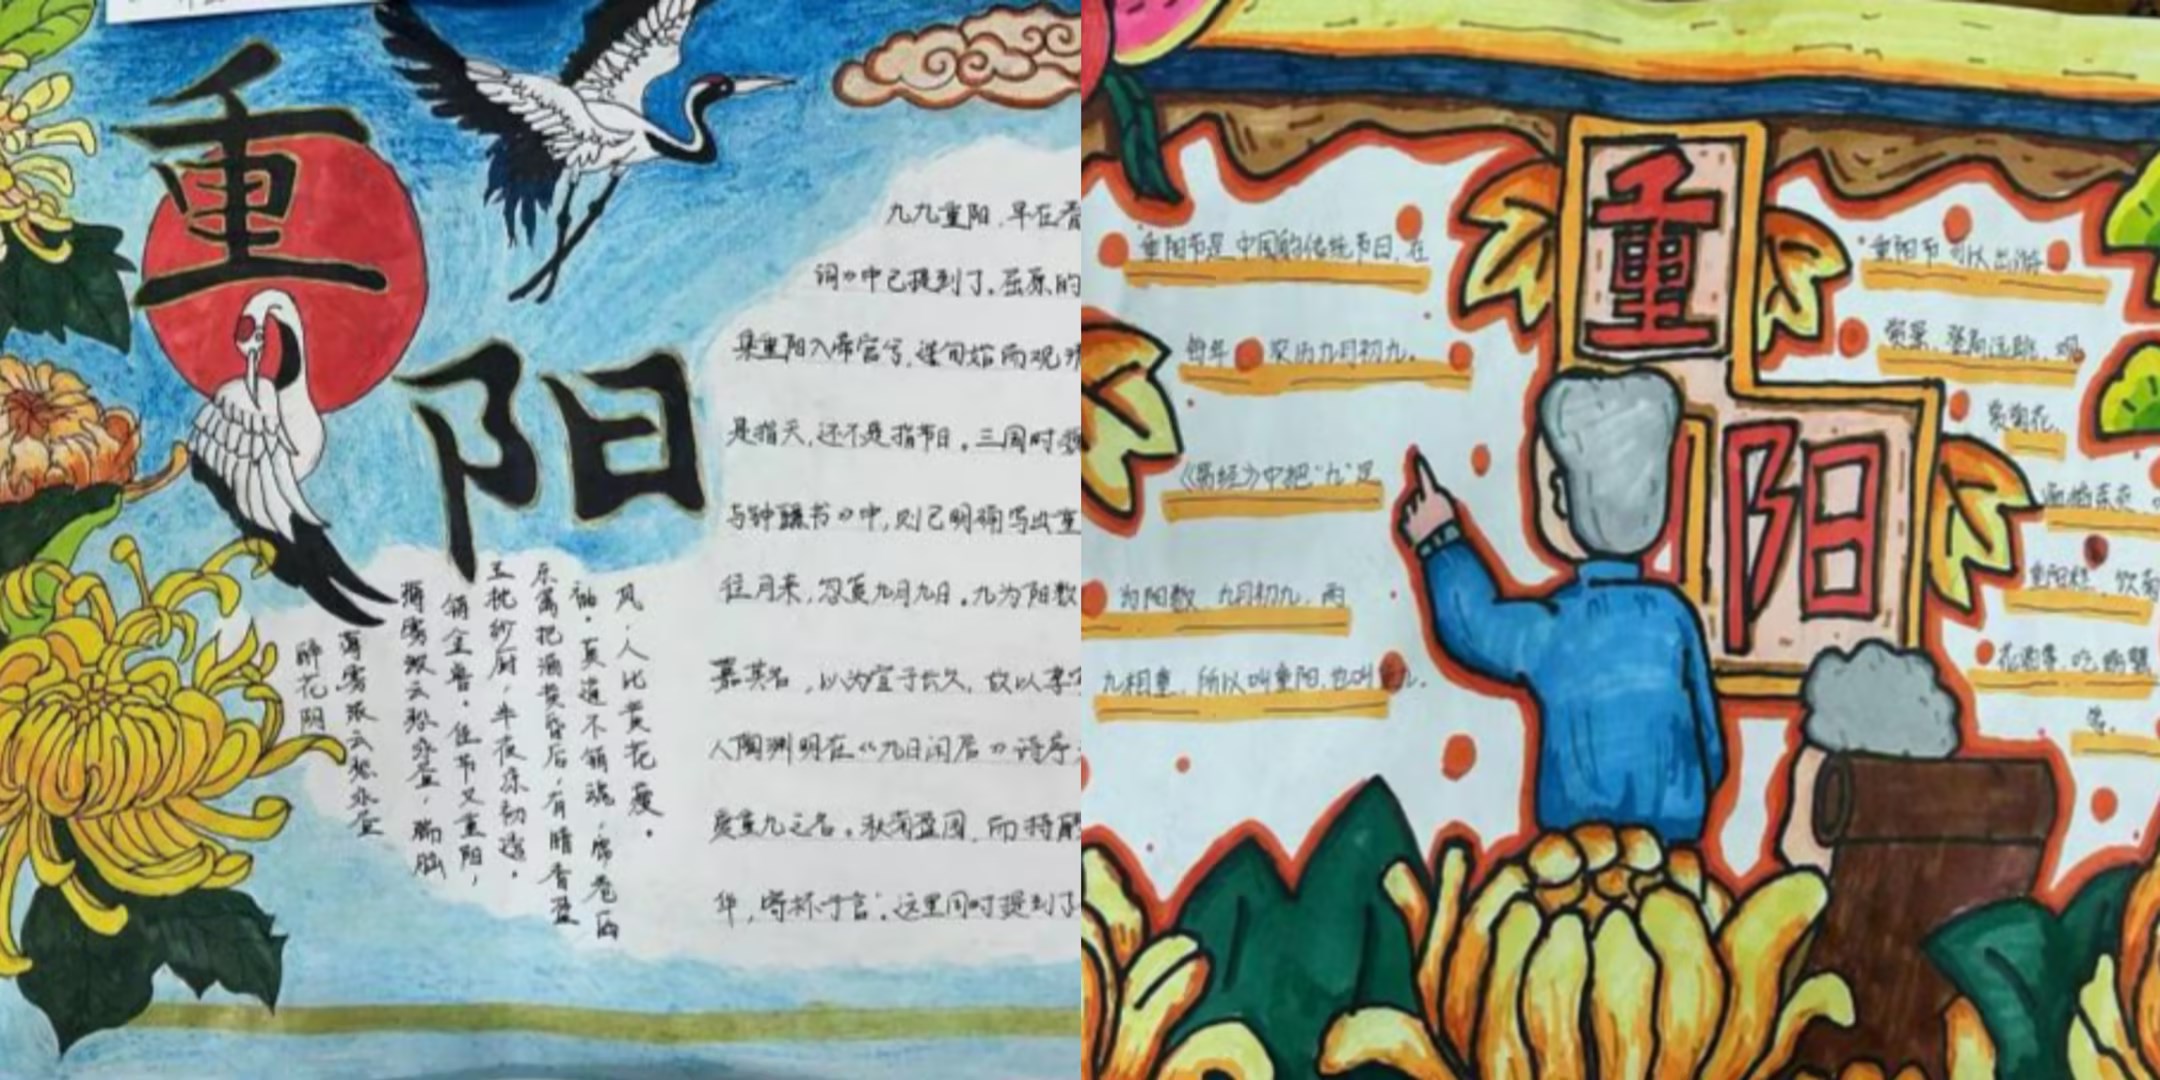 重阳
九九重阳，早在
词》中已提到了。屈原的
集重阳入帝宫兮，造旬始而观清
是指天，还不是指节日。三国时魏
与钟繇书》中，则已明确写出重
往月来，忽复九月九日。九为阳数
嘉其名，以为宜于长久，故以享宴
人陶渊明在《九日闲居》诗序
爱重九之名。秋菊盈园，而持醪
华，寄怀于言”。这里同时提到了
风，人比黄花瘦。
袖。莫道不销魂，帘卷西
东篱把酒黄昏后，有暗香盈
玉枕纱厨，半夜凉初透。
销金兽。佳节又重阳，
薄雾浓云愁永昼，瑞脑
薄雾浓云愁永昼
醉花阴
重
阳
重阳节是中国的传统节日，在
每年 农历九月初九。
《易经》中把“九”定
为阳数，九月初九，两
九相重，所以叫重阳，也叫重九。
重阳节可以出游
赏景、登高远眺、观
赏菊花、
遍插茱萸、
重阳糕、饮菊
花酒
等。